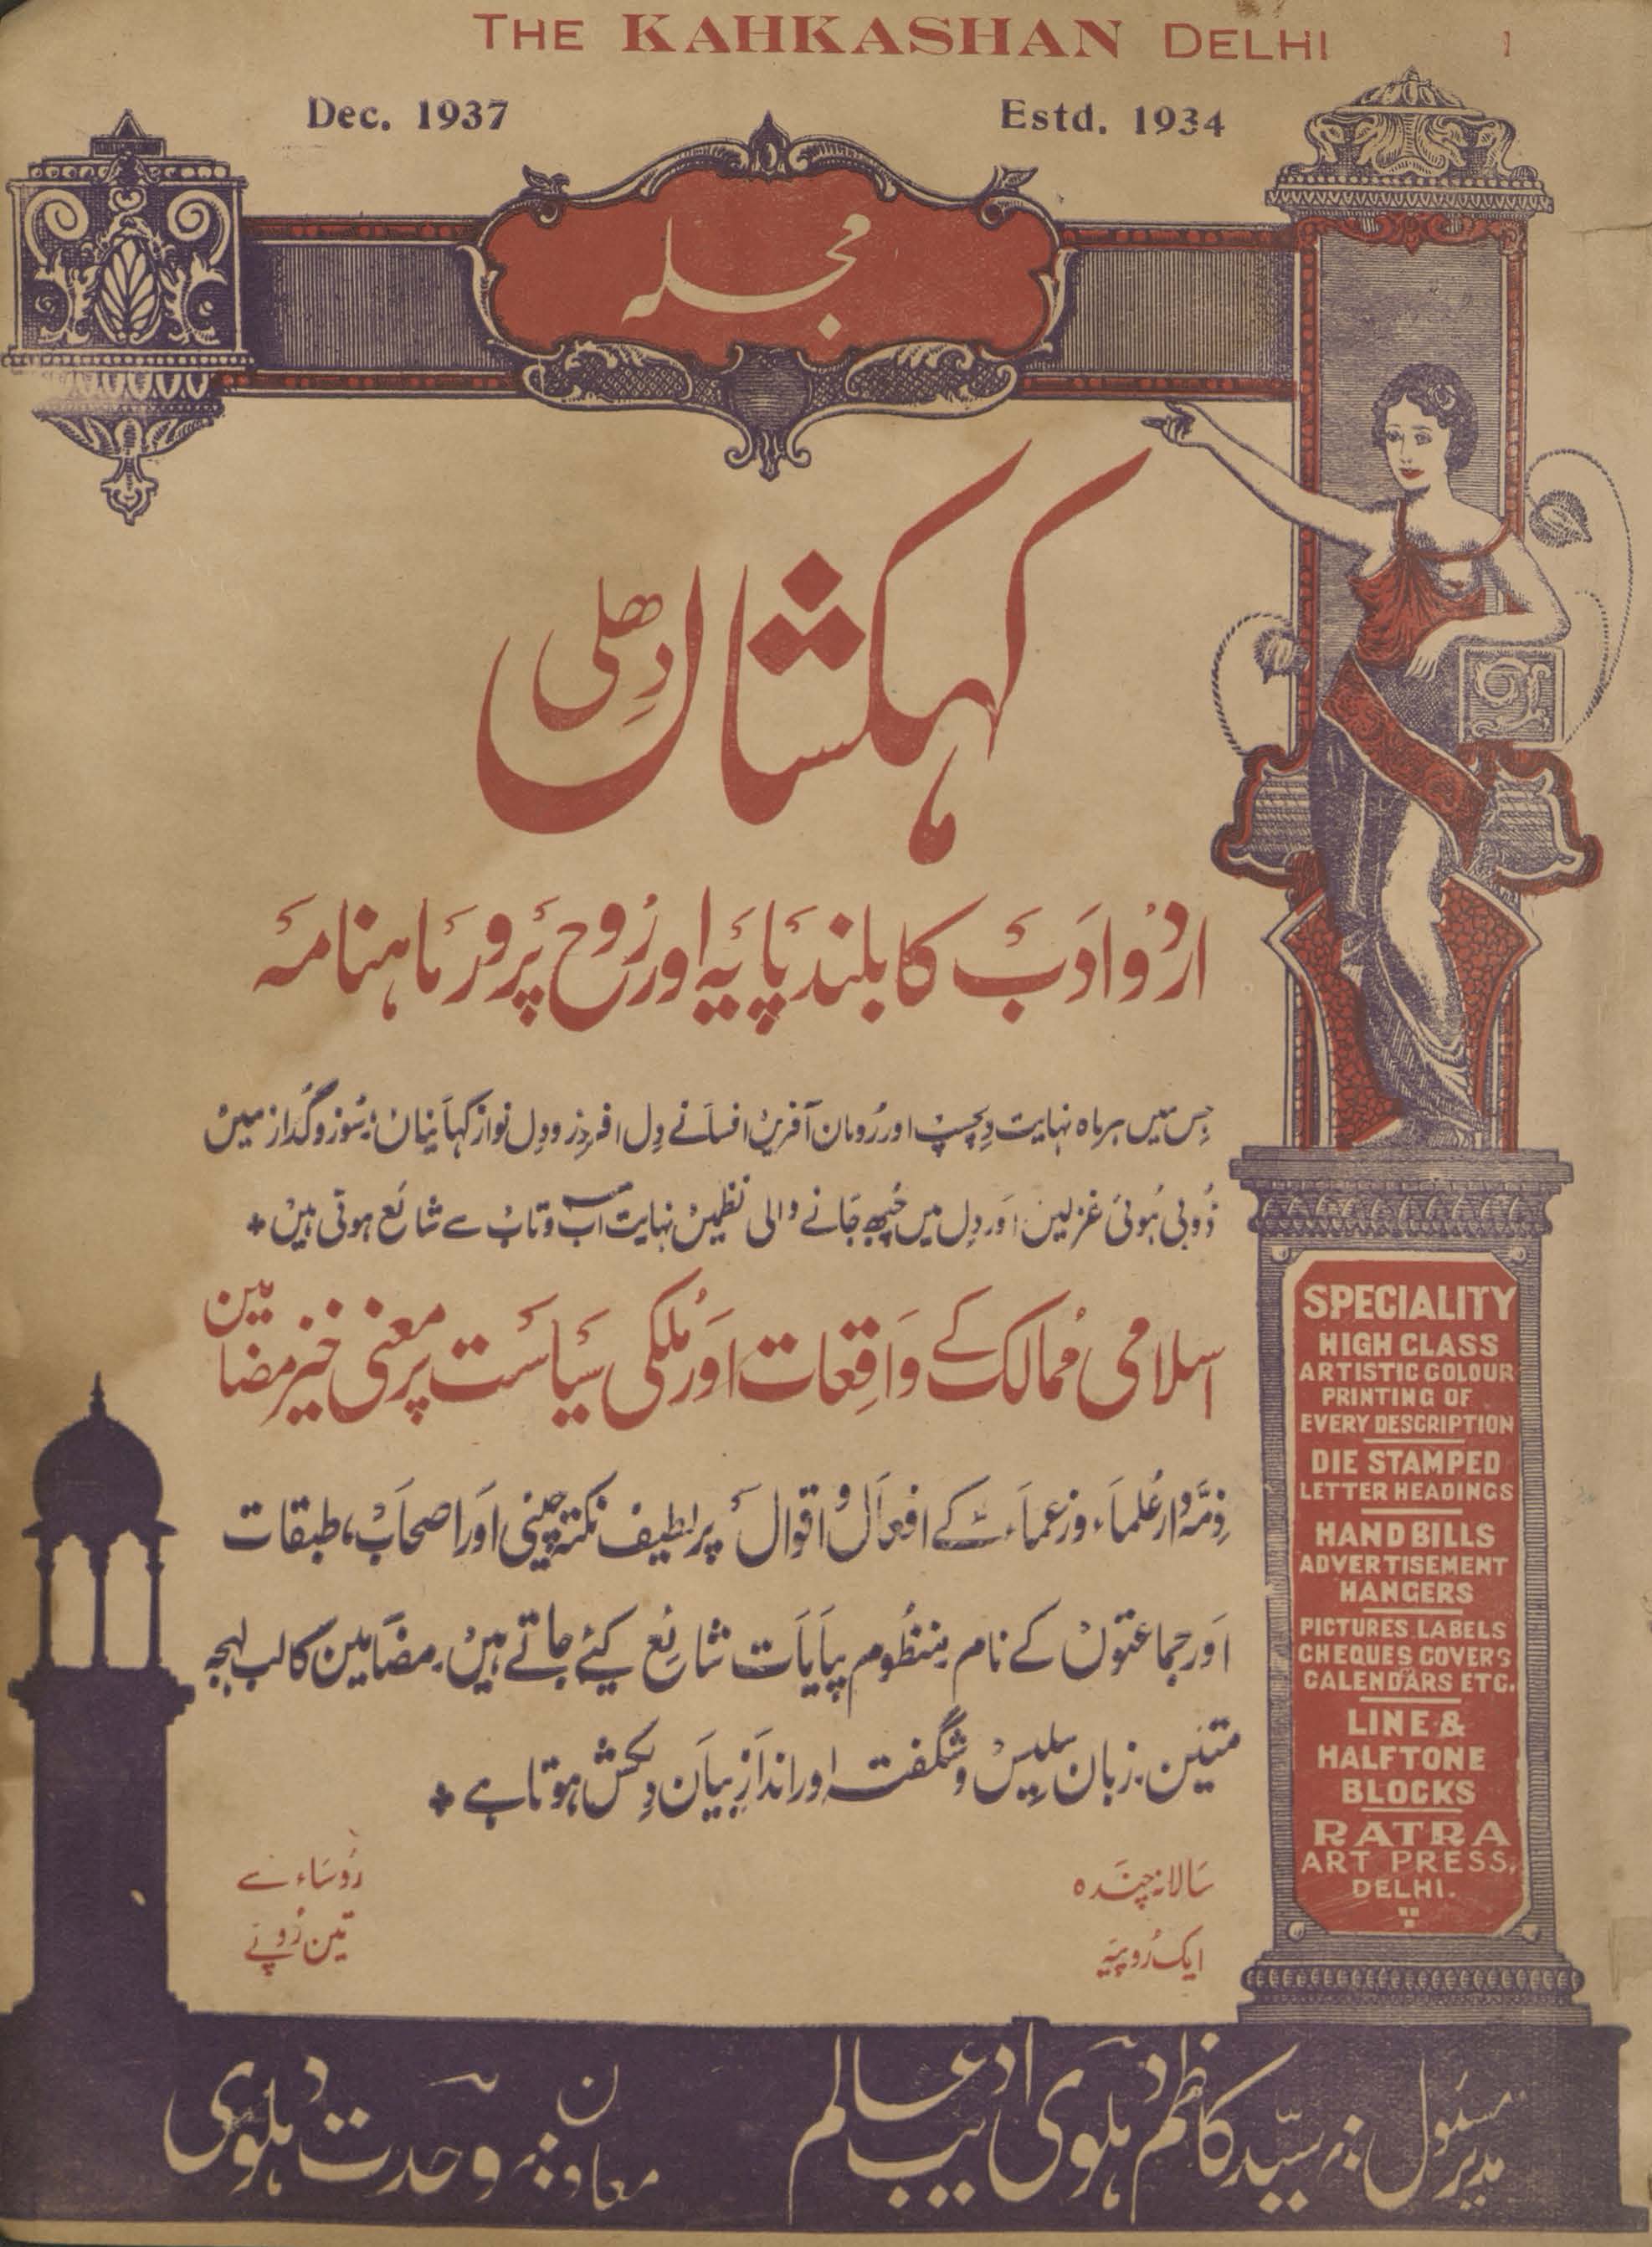 THE KAHKASHAN DELHI
Dec. 1937
Estd. 1934
مجلہ
کہکشاں دھلی
اردو ادب کا بلند پایہ اور روح پرور ماہنامہ
جس میں ہر ماہ نہایت دلچسپ اور رومان آفریں افسانے دل افروز و دل نواز کہانیاں، سوز و گداز میں
ڈوبی ہوئی غزلیں اور دل میں چبھ جانے والی نظمیں نہایت آب و تاب سے شائع ہوتی ہیں +
اسلامی ممالک کے واقعات اور ملکی سیاست پر معنی خیز مضامین
ذمہ دار علماء و زعماء کے افعال و اقوال پر لطیف نکتہ چینی اور اصحاب، طبقات
اور جماعتوں کے نام منظوم پیاپات شائع کئے جاتے ہیں۔ مضامین کا لب لہجہ
متین۔ زبان سلیس و شگفتہ اور انداز بیان دلکش ہوتا ہے +
سالانہ چندہ
ایک روپیہ
روساء سے
تین روپے
مدیر مسئول :۔ سید کاظم دہلوی ادیب عالم
معاون :۔ وحدت دہلوی
SPECIALITY
HIGH CLASS
ARTISTIC COLOUR
PRINTING OF
EVERY DESCRIPTION
DIE STAMPED
LETTER HEADINGS
HAND BILLS
ADVERTISEMENT
HANGERS
PICTURES, LABELS
CHEQUES, COVERS
CALENDARS ETC.
LINE &
HALFTONE
BLOCKS
RATRA
ART PRESS,
DELHI.